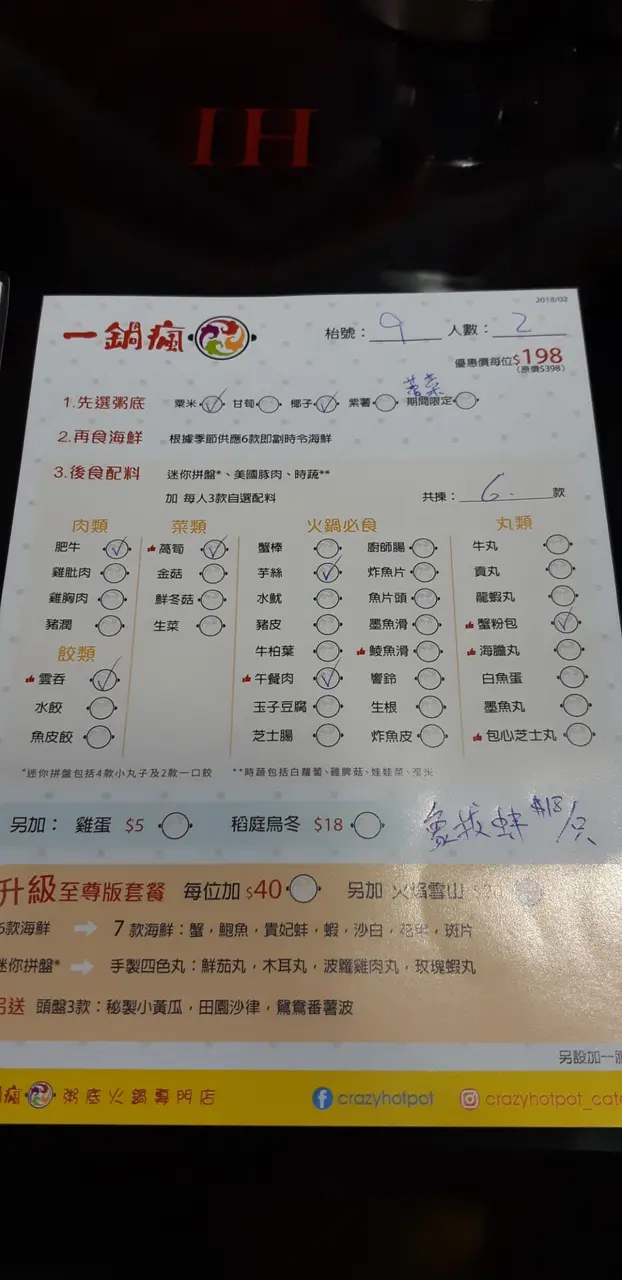 2018/02
一鍋瘋
枱號：9 人數：2
優惠價每位$198
(原價$398)
蕃菜
1.先選粥底 粟米 甘筍 椰子 紫薯 期間限定
2.再食海鮮 根據季節供應6款即劏時令海鮮
3.後食配料 迷你拼盤*、美國豚肉、時蔬**
加 每人3款自選配料 共揀：6 款
肉類 菜類 火鍋必食 丸類
肥牛 萵筍 蟹棒 廚師腸 牛丸
雞肶肉 金菇 芋絲 炸魚片 貢丸
雞胸肉 鮮冬菇 水魷 魚片頭 龍蝦丸
豬潤 生菜 豬皮 墨魚滑 蟹粉包
餃類 牛柏葉 鯪魚滑 海膽丸
雲吞 午餐肉 響鈴 白魚蛋
水餃 玉子豆腐 生根 墨魚丸
魚皮餃 芝士腸 炸魚皮 包心芝士丸
*迷你拼盤包括4款小丸子及2款一口餃 **時蔬包括白蘿蔔、雞脾菇、娃娃菜、粟米
另加： 雞蛋 $5 稻庭烏冬 $18 象拔蚌 $18/只
升級至尊版套餐 每位加 $40 另加 火焰雪山
6款海鮮 7款海鮮：蟹，鮑魚，貴妃蚌，蝦，沙白，花甲，斑片
迷你拼盤* 手製四色丸：鮮茄丸，木耳丸，波蘿雞肉丸，玫瑰蝦丸
另送 頭盤3款：秘製小黃瓜，田園沙律，鴛鴦番薯波
另設加一
瘋 粥底火鍋專門店 crazyhotpot crazyhotpot_cat